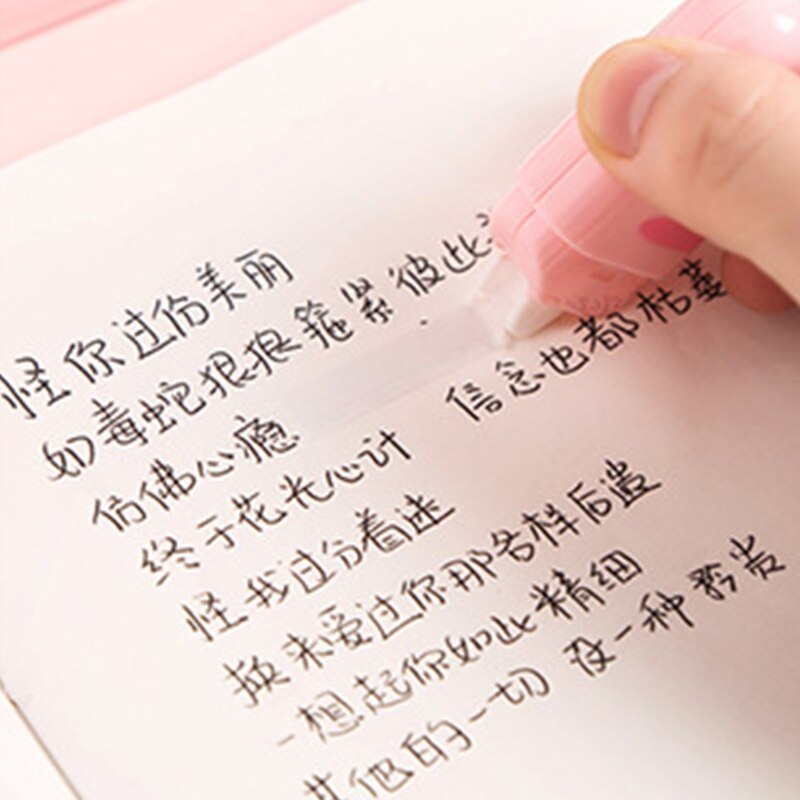 怪你过份美丽
如毒蛇狠狠箍紧彼此
仿佛心瘾
终于花光心计 信念也都枯萎
怪我过份着迷
换来爱过你那各样后遗
一想起你如此精细
其他的一切 没一种矜贵